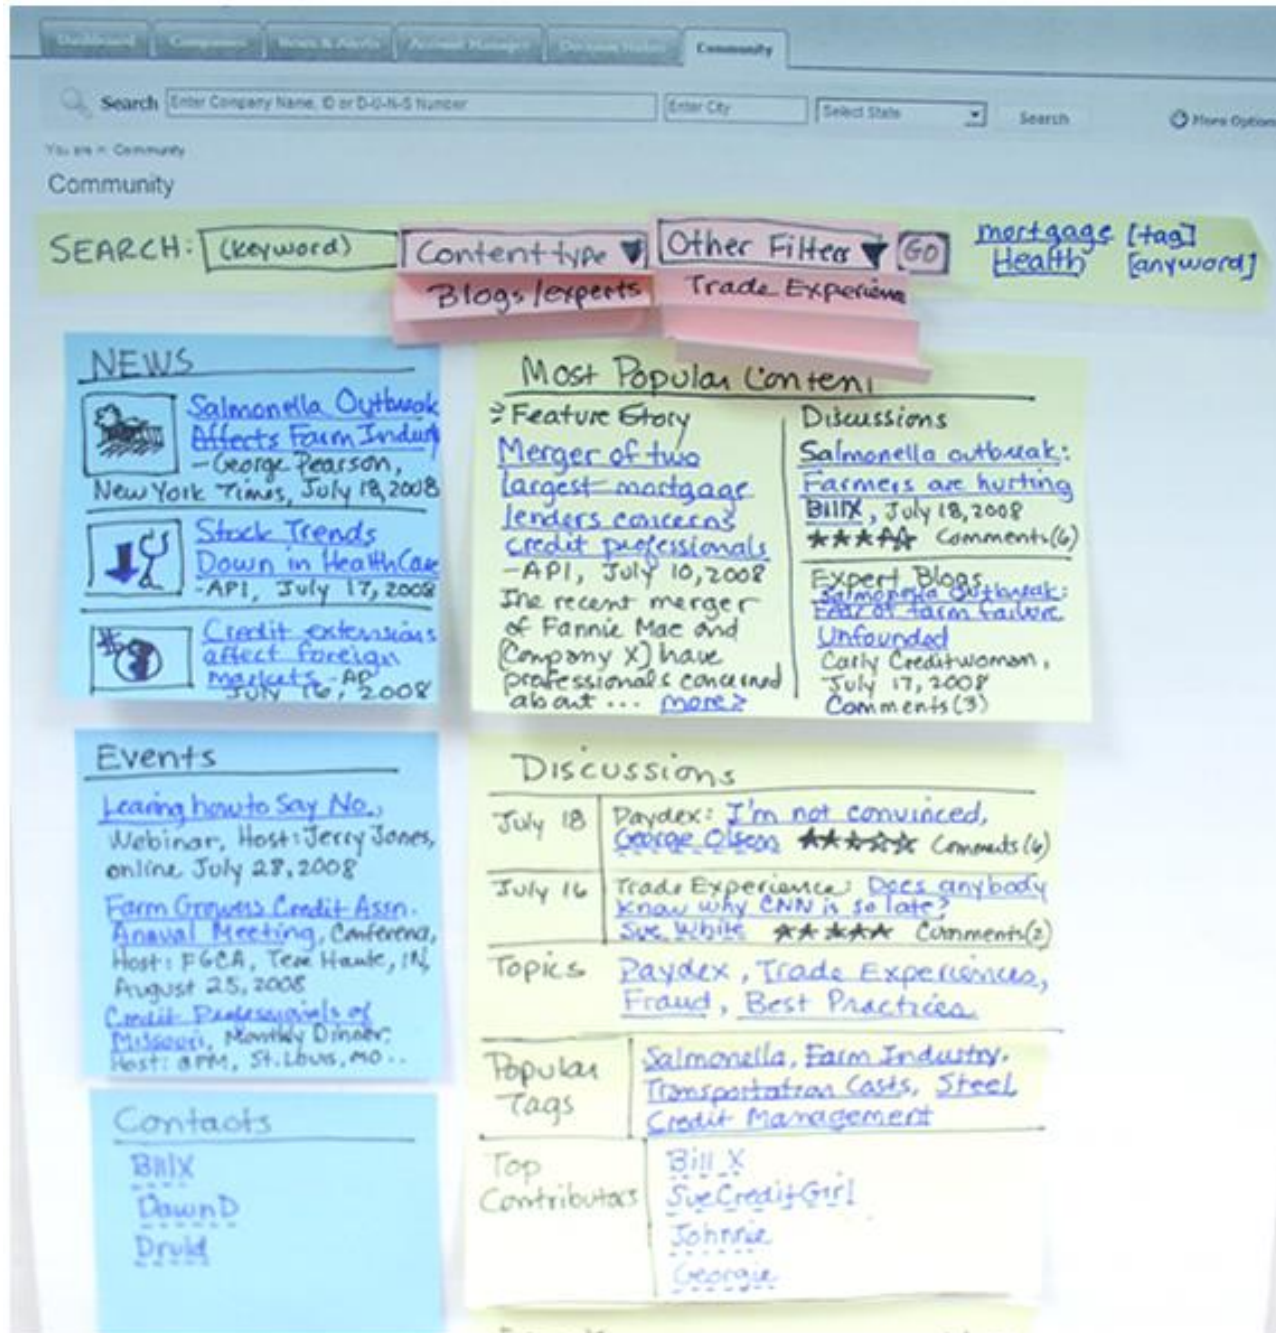 Dashboard
Companies
News & Alerts
Account Manager
Decision Maker
Community
Search
Enter Company Name, ID or D-U-N-S Number
Enter City
Select State
Search
More Option
You are in Community
Community
SEARCH: (keyword)
Content type
Other Filters
GO
mortgage [tag]
Health [anyword]
Blogs/experts
Trade Experienc
NEWS
Salmonella Outbreak
Affects Farm Indust
-George Pearson,
New York Times, July 18, 2008
Stock Trends
Down in HealthCare
-API, July 17, 2008
Credit extensions
affect foreign
markets -AP
July 16, 2008
Most Popular Content
Feature Story
Merger of two
largest mortgage
lenders concerns
credit professionals
-API, July 10, 2008
The recent merger
of Fannie Mae and
[Company X] have
professionals concerned
about ... more>
Discussions
Salmonella outbreak:
Farmers are hurting
BillX, July 18, 2008
★★★☆☆ Comments(6)
Expert Blogs
Salmonella Outbreak:
Fear of farm failure
Unfounded
Carly Creditwoman,
July 17, 2008
Comments(3)
Events
Learing how to Say No.,
Webinar, Host: Jerry Jones,
online July 28, 2008
Farm Growers Credit Assn.
Annual Meeting, Conferenc,
Host: FGCA, Tere Haute, IN,
August 25, 2008
Credit Professionals of
Missouri, Monthly Dinner,
Host: CPM, St. Louis, MO ..
Discussions
July 18
Paydex: I'm not convinced,
George Olsen ★★☆☆☆ Comments(6)
July 16
Trade Experience: Does anybody
know why CNN is so late?
Sue White ★★★★★ Comments(2)
Topics
Paydex, Trade Experiences,
Fraud, Best Practices
Popular
Tags
Salmonella, Farm Industry,
Transportation Costs, Steel
Credit Management
Top
Contributors
Bill X
SueCreditGirl
Johnnie
Georgie
Contacts
BillX
DawnD
Druid